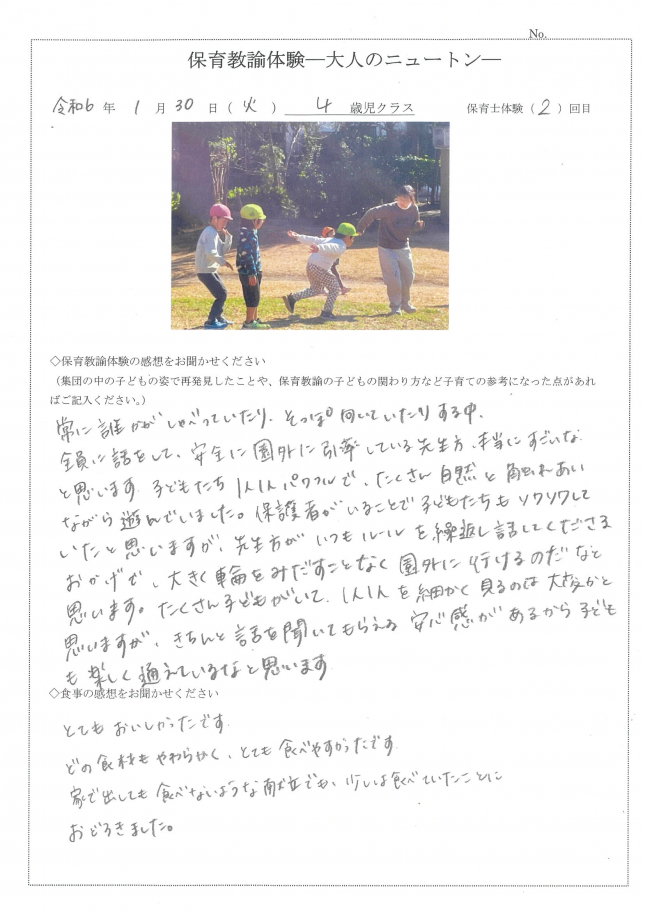 No.
保育教諭体験―大人のニュートン―
令和6年 1月30日(火) 4歳児クラス 保育士体験(2)回目
◇保育教諭体験の感想をお聞かせください
（集団の中の子どもの姿で再発見したことや、保育教諭の子どもの関わり方など子育ての参考になった点があれ
ばご記入ください。）
常に誰かがしゃべっていたり、そっぽ向いていたりする中、
全員に話をして、安全に園外に引率している先生方、本当にすごいな
と思います。子どもたち1人1人パワフルで、たくさん自然と触れあい
ながら遊んでいました。保護者がいることで子どもたちもソワソワして
いたと思いますが、先生方がいつもルールを繰返し話してくださる
おかげで、大きく輪をみだすことなく園外に行けるのだなと
思います。たくさん子どもがいて、1人1人を細かく見るのは大変かと
思いますが、きちんと話を聞いてもらえる安心感があるから子ども
も楽しく通えているなと思います
◇食事の感想をお聞かせください
とてもおいしかったです。
どの食材もやわらかく、とても食べやすかったです
家で出しても食べないような献立でも、少しは食べていたことに
おどろきました。